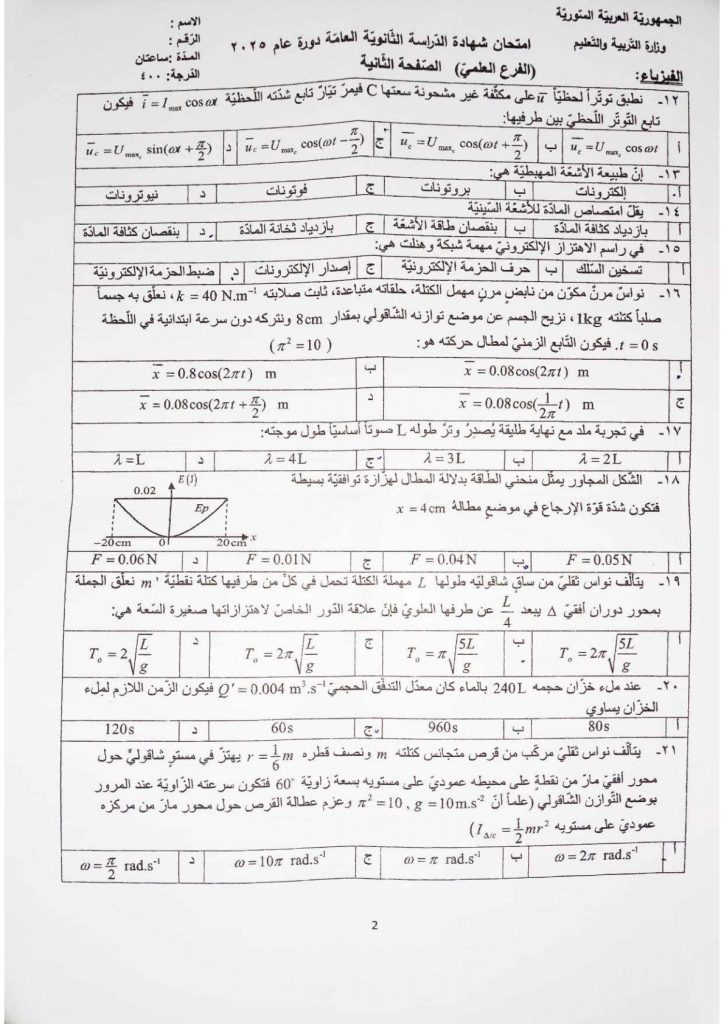 الجمهوريّة العربيّة السّوريّة
وزارة التّربية والتّعليم
امتحان شهادة الدّراسة الثّانويّة العامّة دورة عام ٢٠٢٥
(الفرع العلميّ) الصّفحة الثّانية
الفيزياء:
الاسم :
الرّقم :
المدّة :ساعتان
الدّرجة: ٤٠٠
١٢- نطبق توتّراً لحظيّاً u على مكثّفة غير مشحونة سعتها C فيمرّ تيّار تابع شدّته اللّحظيّة i = Imax cos ωt فيكون
تابع التّوتّر اللّحظيّ بين طرفيها:
أ uc = Umaxc cos ωt ب uc = Umaxc cos(ωt + π/2) ج uc = Umaxc cos(ωt − π/2) د uc = Umaxc sin(ωt + π/2)
١٣- إنّ طبيعة الأشعّة المهبطيّة هي:
أ إلكترونات ب بروتونات ج فوتونات د نيوترونات
١٤- يقلّ امتصاص المادّة للأشعّة السّينيّة
أ بازدياد كثافة المادّة ب بنقصان طاقة الأشعّة ج بازدياد ثخانة المادّة د بنقصان كثافة المادّة
١٥- في راسم الاهتزاز الإلكترونيّ مهمة شبكة وهنلت هي:
أ تسخين السّلك ب حرف الحزمة الإلكترونيّة ج إصدار الإلكترونات د ضبط الحزمة الإلكترونيّة
١٦- نواس مرن مكوّن من نابض مرن مهمل الكتلة، حلقاته متباعدة، ثابت صلابته k = 40 N.m⁻¹، نعلّق به جسماً
صلباً كتلته 1kg، نزيح الجسم عن موضع توازنه الشّاقولي بمقدار 8cm ونتركه دون سرعة ابتدائية في اللّحظة
t = 0 s. فيكون التّابع الزمنيّ لمطال حركته هو: ( π² = 10 )
أ x = 0.08cos(2πt) m ب x = 0.8cos(2πt) m
ج x = 0.08cos(1/2π t) m د x = 0.08cos(2πt + π/2) m
١٧- في تجربة ملد مع نهاية طليقة يُصدِرُ وترٌ طوله L صوتاً أساسيّاً طول موجته:
أ λ = 2L ب λ = 3L ج λ = 4L د λ = L
١٨- الشّكل المجاور يمثّل منحني الطّاقة بدلالة المطال لهزّازة توافقيّة بسيطة
فتكون شدّة قوّة الإرجاع في موضع مطاله x = 4cm
E (J)
0.02
Ep
−20cm 0 20cm x
أ F = 0.05N ب F = 0.04N ج F = 0.01N د F = 0.06N
١٩- يتألّف نواس ثقليّ من ساق شاقوليّة طولها L مهملة الكتلة تحمل في كلّ من طرفيها كتلة نقطيّة m' نعلّق الجملة
بمحور دوران أفقيّ Δ يبعد L/4 عن طرفها العلويّ فإنّ علاقة الدّور الخاصّ لاهتزازاتها صغيرة السّعة هي:
أ To = 2π√(5L/g) ب To = π√(5L/g) ج To = 2π√(L/g) د To = 2√(L/g)
٢٠- عند ملء خزّان حجمه 240L بالماء كان معدّل التدفّق الحجميّ Q' = 0.004 m³.s⁻¹ فيكون الزّمن اللازم لملء
الخزّان يساوي
أ 80s ب 960s ج 60s د 120s
٢١- يتألّف نواس ثقليّ مركّب من قرص متجانس كتلته m ونصف قطره r = 1/6 m يهتزّ في مستوٍ شاقوليٍّ حول
محور أفقيّ مارّ من نقطةٍ على محيطه عموديّ على مستويه بسعة زاويّة 60° فتكون سرعته الزّاويّة عند المرور
بوضع التّوازن الشّاقولي (علماً أنّ π² = 10 , g = 10m.s⁻² وعزم عطالة القرص حول محور مارّ من مركزه
عموديّ على مستويه IΔ/c = 1/2 mr²)
أ ω = 2π rad.s⁻¹ ب ω = π rad.s⁻¹ ج ω = 10π rad.s⁻¹ د ω = π/2 rad.s⁻¹
2